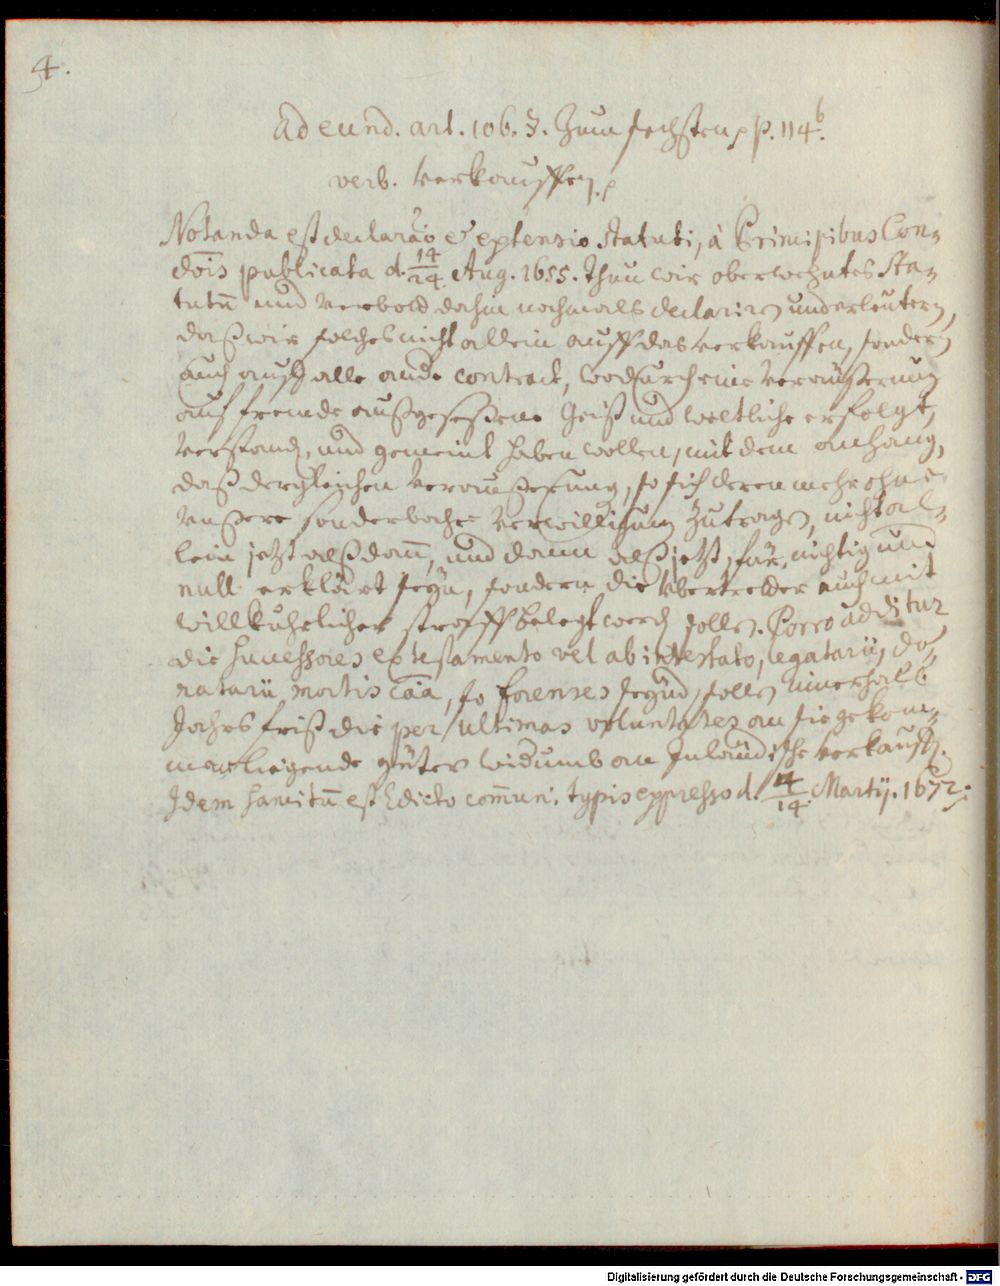 4.
ad eund. art. 106. §. Zum sechsten p. 114.b
verb. verkauffen.
Notanda est declarão & extensio statuti, à Principibus Con-
dois publicata d. 14/24 Aug. 1655. thun wir oberwehntes Sta-
tutū und Verbott dahin nochmals declariren und erleutern,
daß wir solches nicht allein auff das verkauffen, sondern
auch auff alle ande contract, wodurch eine veräußerung
auf fremde außgeseßene Geist und weltliche erfolgt,
verstand, und gemeint haben wollen, mit dem anhang,
daß dergleichen veräußerung, so sich deren mehr ohne
unßere sonderbahre verwilligung zutragen, nicht al-
lein jetzt alß dann, und dann alß jetzt, für nichtig und
null erklärt seyn, sondern die übertretter auch mit
willkührlicher straff belegt werd sollen. Porro additur
die successores ex testamento vel ab intestato, legatarii, do-
natarii mortis cãa, so forenses seynd, sollen innerhalb
Jahrs frist die per ultimas voluntates an sie gekom-
mene liegende güter widumb an Inländische verkauffen.
Idem sancitū est Edicto com̄uni, typis expresso d. 4/14. Martij. 1672.
Digitalisierung gefördert durch die Deutsche Forschungsgemeinschaft - DFG